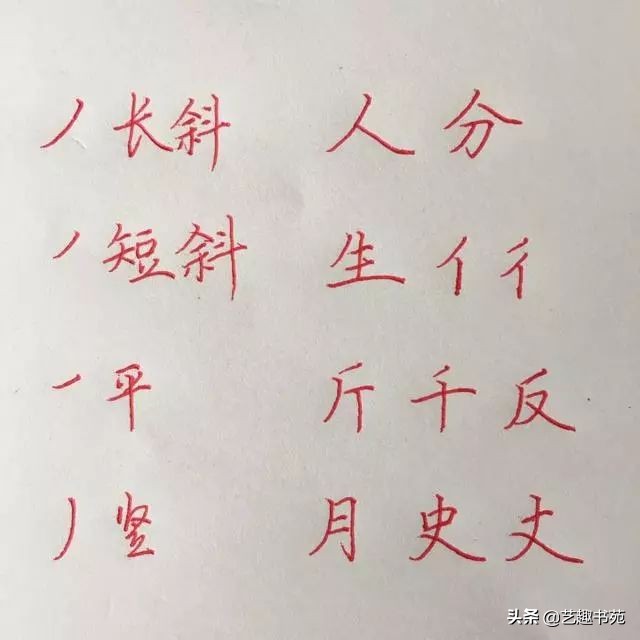 丿 长斜 人 分
丿 短斜 生 亻 彳
㇀ 平 斤 千 反
丿 竖 月 史 丈
头条 @艺趣书苑